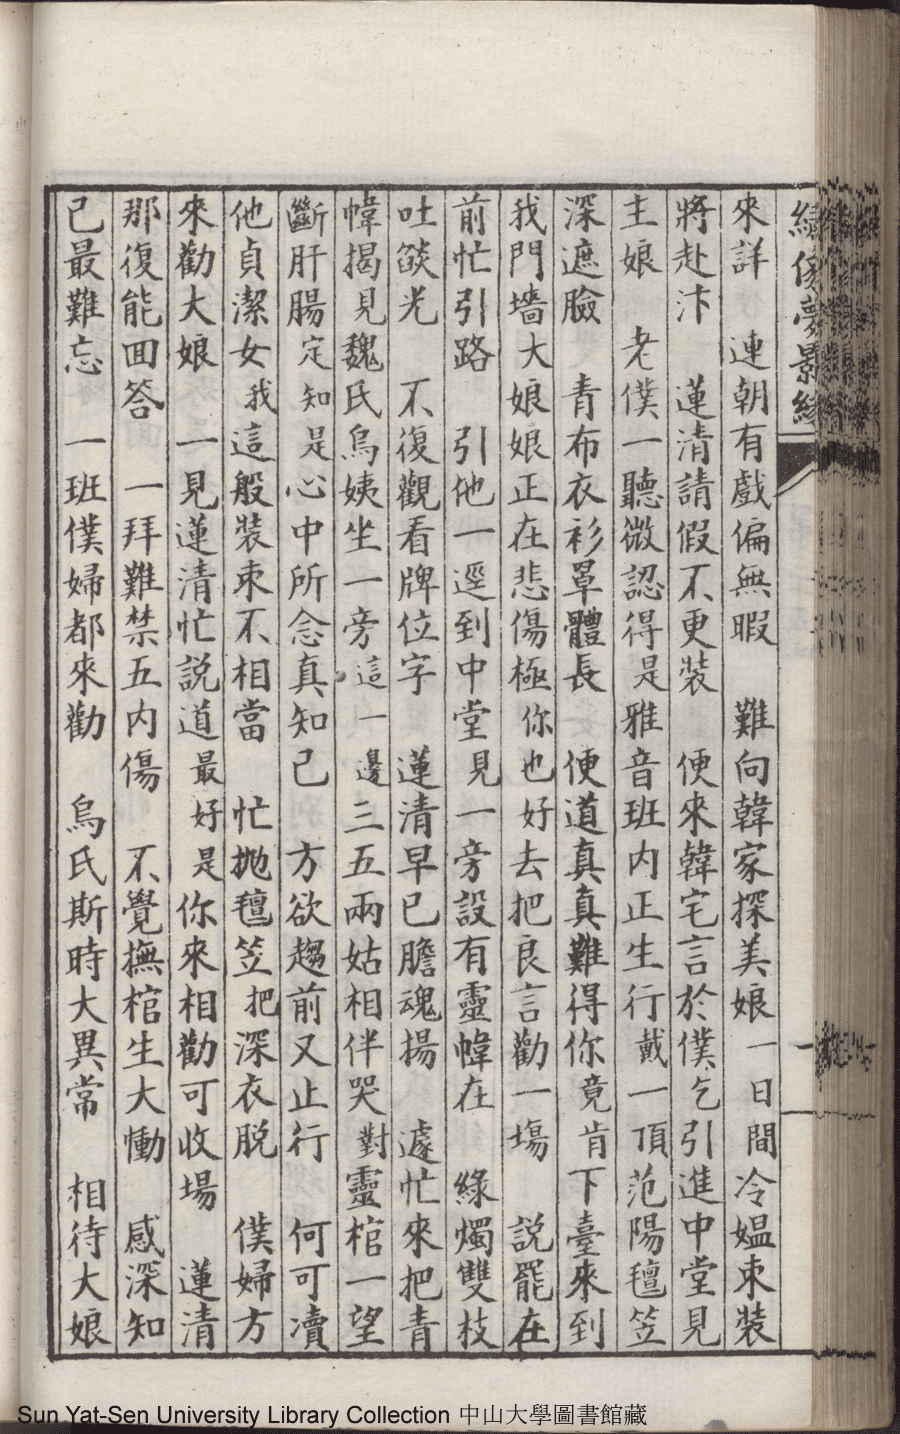 繡像夢影緣
一
來詳　連朝有戲偏無暇　難向韓家探美娘　一日間冷媼束裝
將赴汴　蓮清請假不更裝　便來韓宅言於僕乞引進中堂見
主娘　老僕一聽微認得是雅音班内正生行戴一頂范陽氊笠
深遮臉　青布衣衫罩體長　便道真真難得你竟肯下臺來到
我門墻大娘娘正在悲傷極你也好去把良言勸一塲　説罷在
前忙引路　引他一逕到中堂見一旁設有靈幃在　綠燭雙枝
吐燄光　不復觀看牌位字　蓮清早已膽魂揚　遽忙來把青
幃揭見魏氏烏姨坐一旁這一邊三五兩姑相伴哭對靈棺一望
斷肝腸定知是心中所念真知己　方欲趨前又止行　何可瀆
他貞潔女我這般裝束不相當　忙抛氊笠把深衣脱　僕婦方
來勸大娘　一見蓮清忙説道最好是你來相勸可收場　蓮清
那復能囬答　一拜難禁五内傷　不覺撫棺生大慟　感深知
己最難忘　一班僕婦都來勸　烏氏斯時大異常　相待大娘
Sun Yat-Sen University Library Collection 中山大學圖書館藏